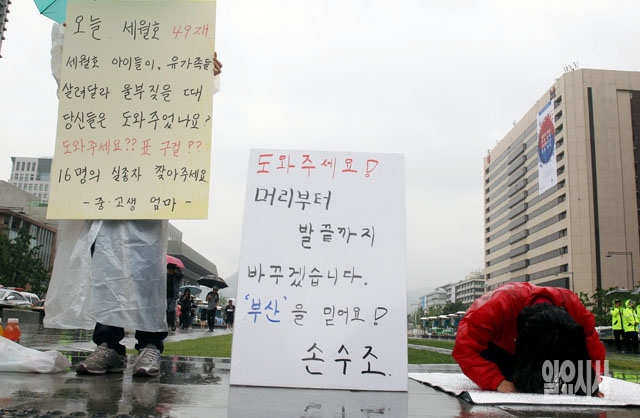 오늘. 세월호 49재
세월호 아이들이, 유가족들
살려달라 울부짖을 때
당신들은 도와주었나요?
도와주세요?? 표 구걸??
16명의 실종자 찾아주세요
- 중·고생 엄마 -
도와주세요!
머리부터
발끝까지
바꾸겠습니다.
'부산'을 믿어요!
손수조.
일요시사